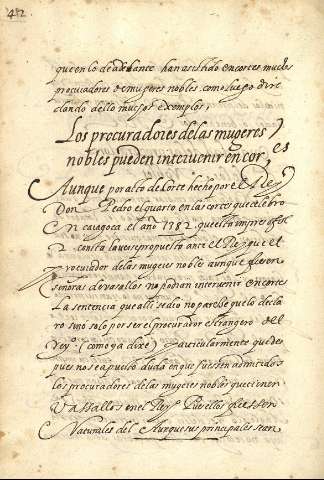 42
que en lo de adelante han asistido en cortes muchos
procuradores de mugeres nobles como luego dire
dando dello muchos exemplos,
Los procuradores de las mugeres
nobles pueden interuenir en cortes
Aunque por acto de corte hecho por el Rey
Don Pedro el quarto en las cortes que celebro
En caragoça el año 1382 que esta impres
contra la vuese propuesta ante el Rey que el
procurador de las mugeres nobles aunque fuesen
señoras de vasallos no podian intervenir en cortes
La sentencia que alli se dio no pareze que lo decla
ro sino solo por ser el procurador estrangero del
Reyº (como ya dixe) y particularmente que des
pues no se a puesto duda en que fuessen admitidos
los procuradores de las mugeres nobles que tienen
Vassallos en el Reyº Pues ellos fuessen
Naturales del Aunque sus principales sean